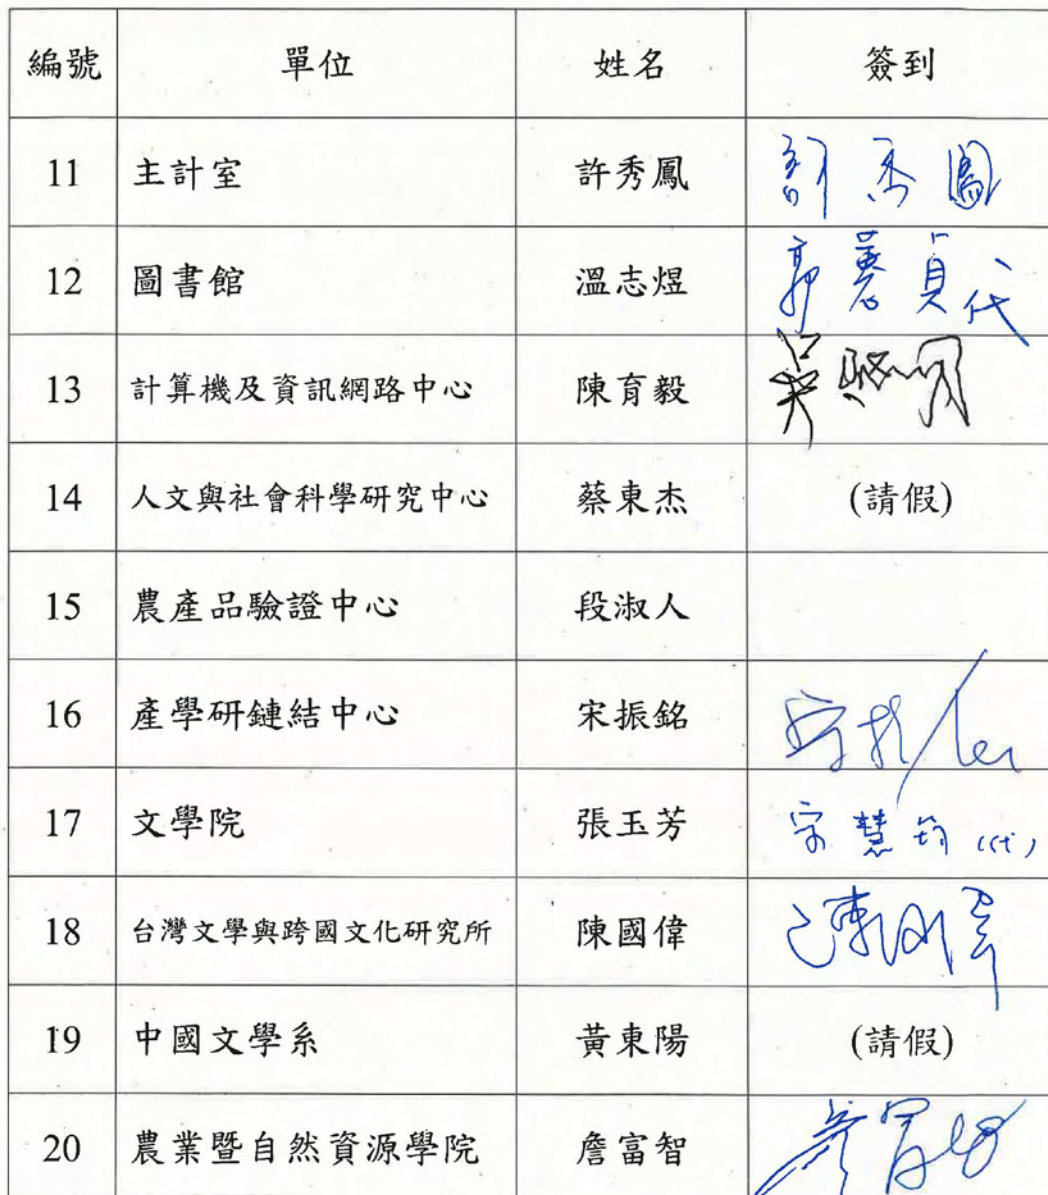 編號 單位 姓名 簽到
11 主計室 許秀鳳 許秀鳳
12 圖書館 溫志煜 郭蕙貞代
13 計算機及資訊網路中心 陳育毅
14 人文與社會科學研究中心 蔡東杰 (請假)
15 農產品驗證中心 段淑人
16 產學研鏈結中心 宋振銘
17 文學院 張玉芳 慧筠(代)
18 台灣文學與跨國文化研究所 陳國偉 陳國偉
19 中國文學系 黃東陽 (請假)
20 農業暨自然資源學院 詹富智 詹富智